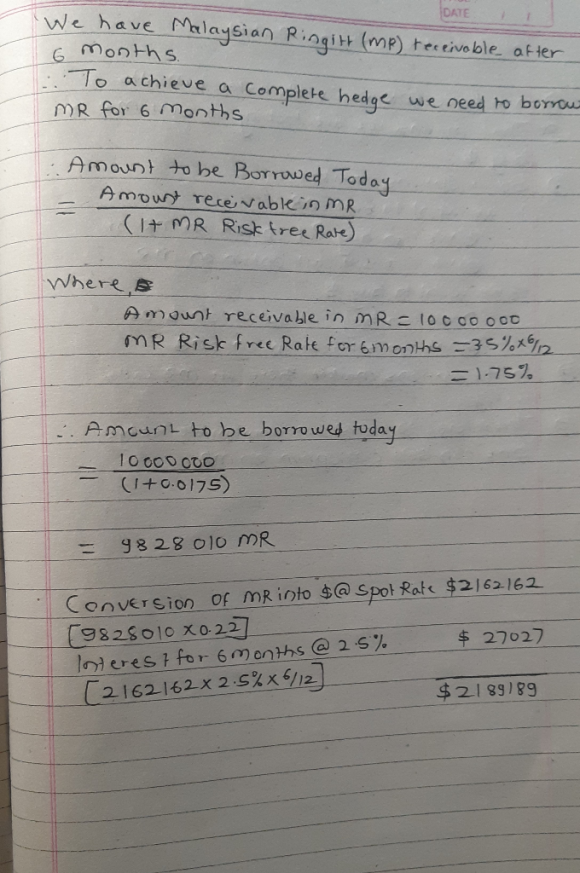 DATE
We have Malaysian Ringitt (MR) receivable after
6 months.
∴ To achieve a complete hedge we need to borrow
MR for 6 months
∴ Amount to be Borrowed Today
= Amount receivable in MR
(1+ MR Risk free Rate)
Where,
Amount receivable in MR = 10000000
MR Risk free Rate for 6 months = 3.5% × 6/12
= 1.75%
∴ Amount to be borrowed today
= 10000000
(1+0.0175)
= 9828010 MR
Conversion of MR into $ @ Spot Rate $2162162
[9828010 × 0.22]
Interest for 6 months @ 2.5% $ 27027
[2162162 × 2.5% × 6/12]
$2189189